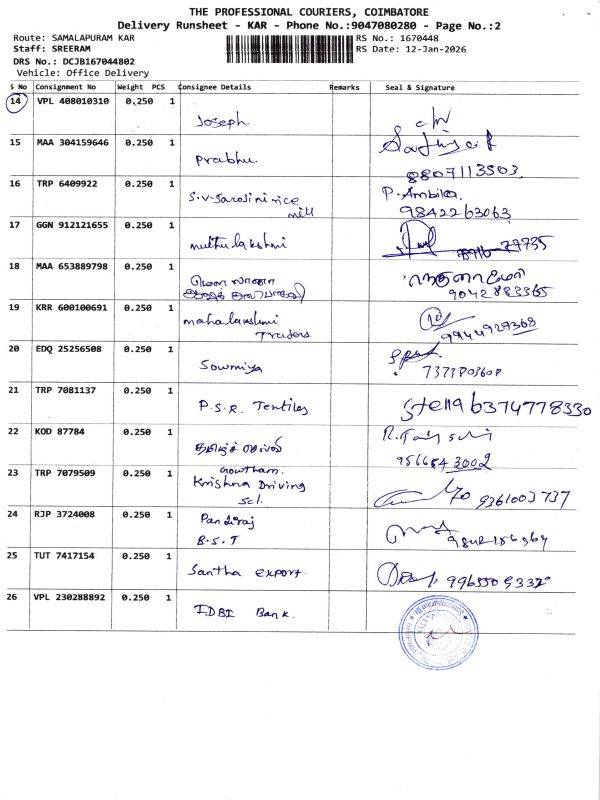 THE PROFESSIONAL COURIERS, COIMBATORE
Delivery Runsheet - KAR - Phone No.:9047080280 - Page No.:2
Route: SAMALAPURAM KAR RS No.: 1670448
Staff: SREERAM RS Date: 12-Jan-2026
DRS No.: DCJB167044802
Vehicle: Office Delivery
S No Consignment No Weight PCS Consignee Details Remarks Seal & Signature
14 VPL 408010310 0.250 1
Joseph
15 MAA 304159646 0.250 1
Prabhu
8807113503
16 TRP 6409922 0.250 1 P. Ambika
S.V. Sarojini rice 9842263063
mill
17 GGN 912121655 0.250 1
muthulakshmi
18 MAA 653889798 0.250 1
9042883365
19 KRR 600100691 0.250 1
mahalakshmi 9944929368
Traders
20 EDQ 25256508 0.250 1
Sowmiya
21 TRP 7081137 0.250 1
P.S.R. Textiles Stella 6374778330
22 KOD 87784 0.250 1
9566843002
Gowtham.
23 TRP 7079509 0.250 1
Krishna Driving 9361003737
Scl.
24 RJP 3724008 0.250 1
Pandiraj
B.S.T
25 TUT 7417154 0.250 1
Santha export.
26 VPL 230288892 0.250 1
IDBI Bank.